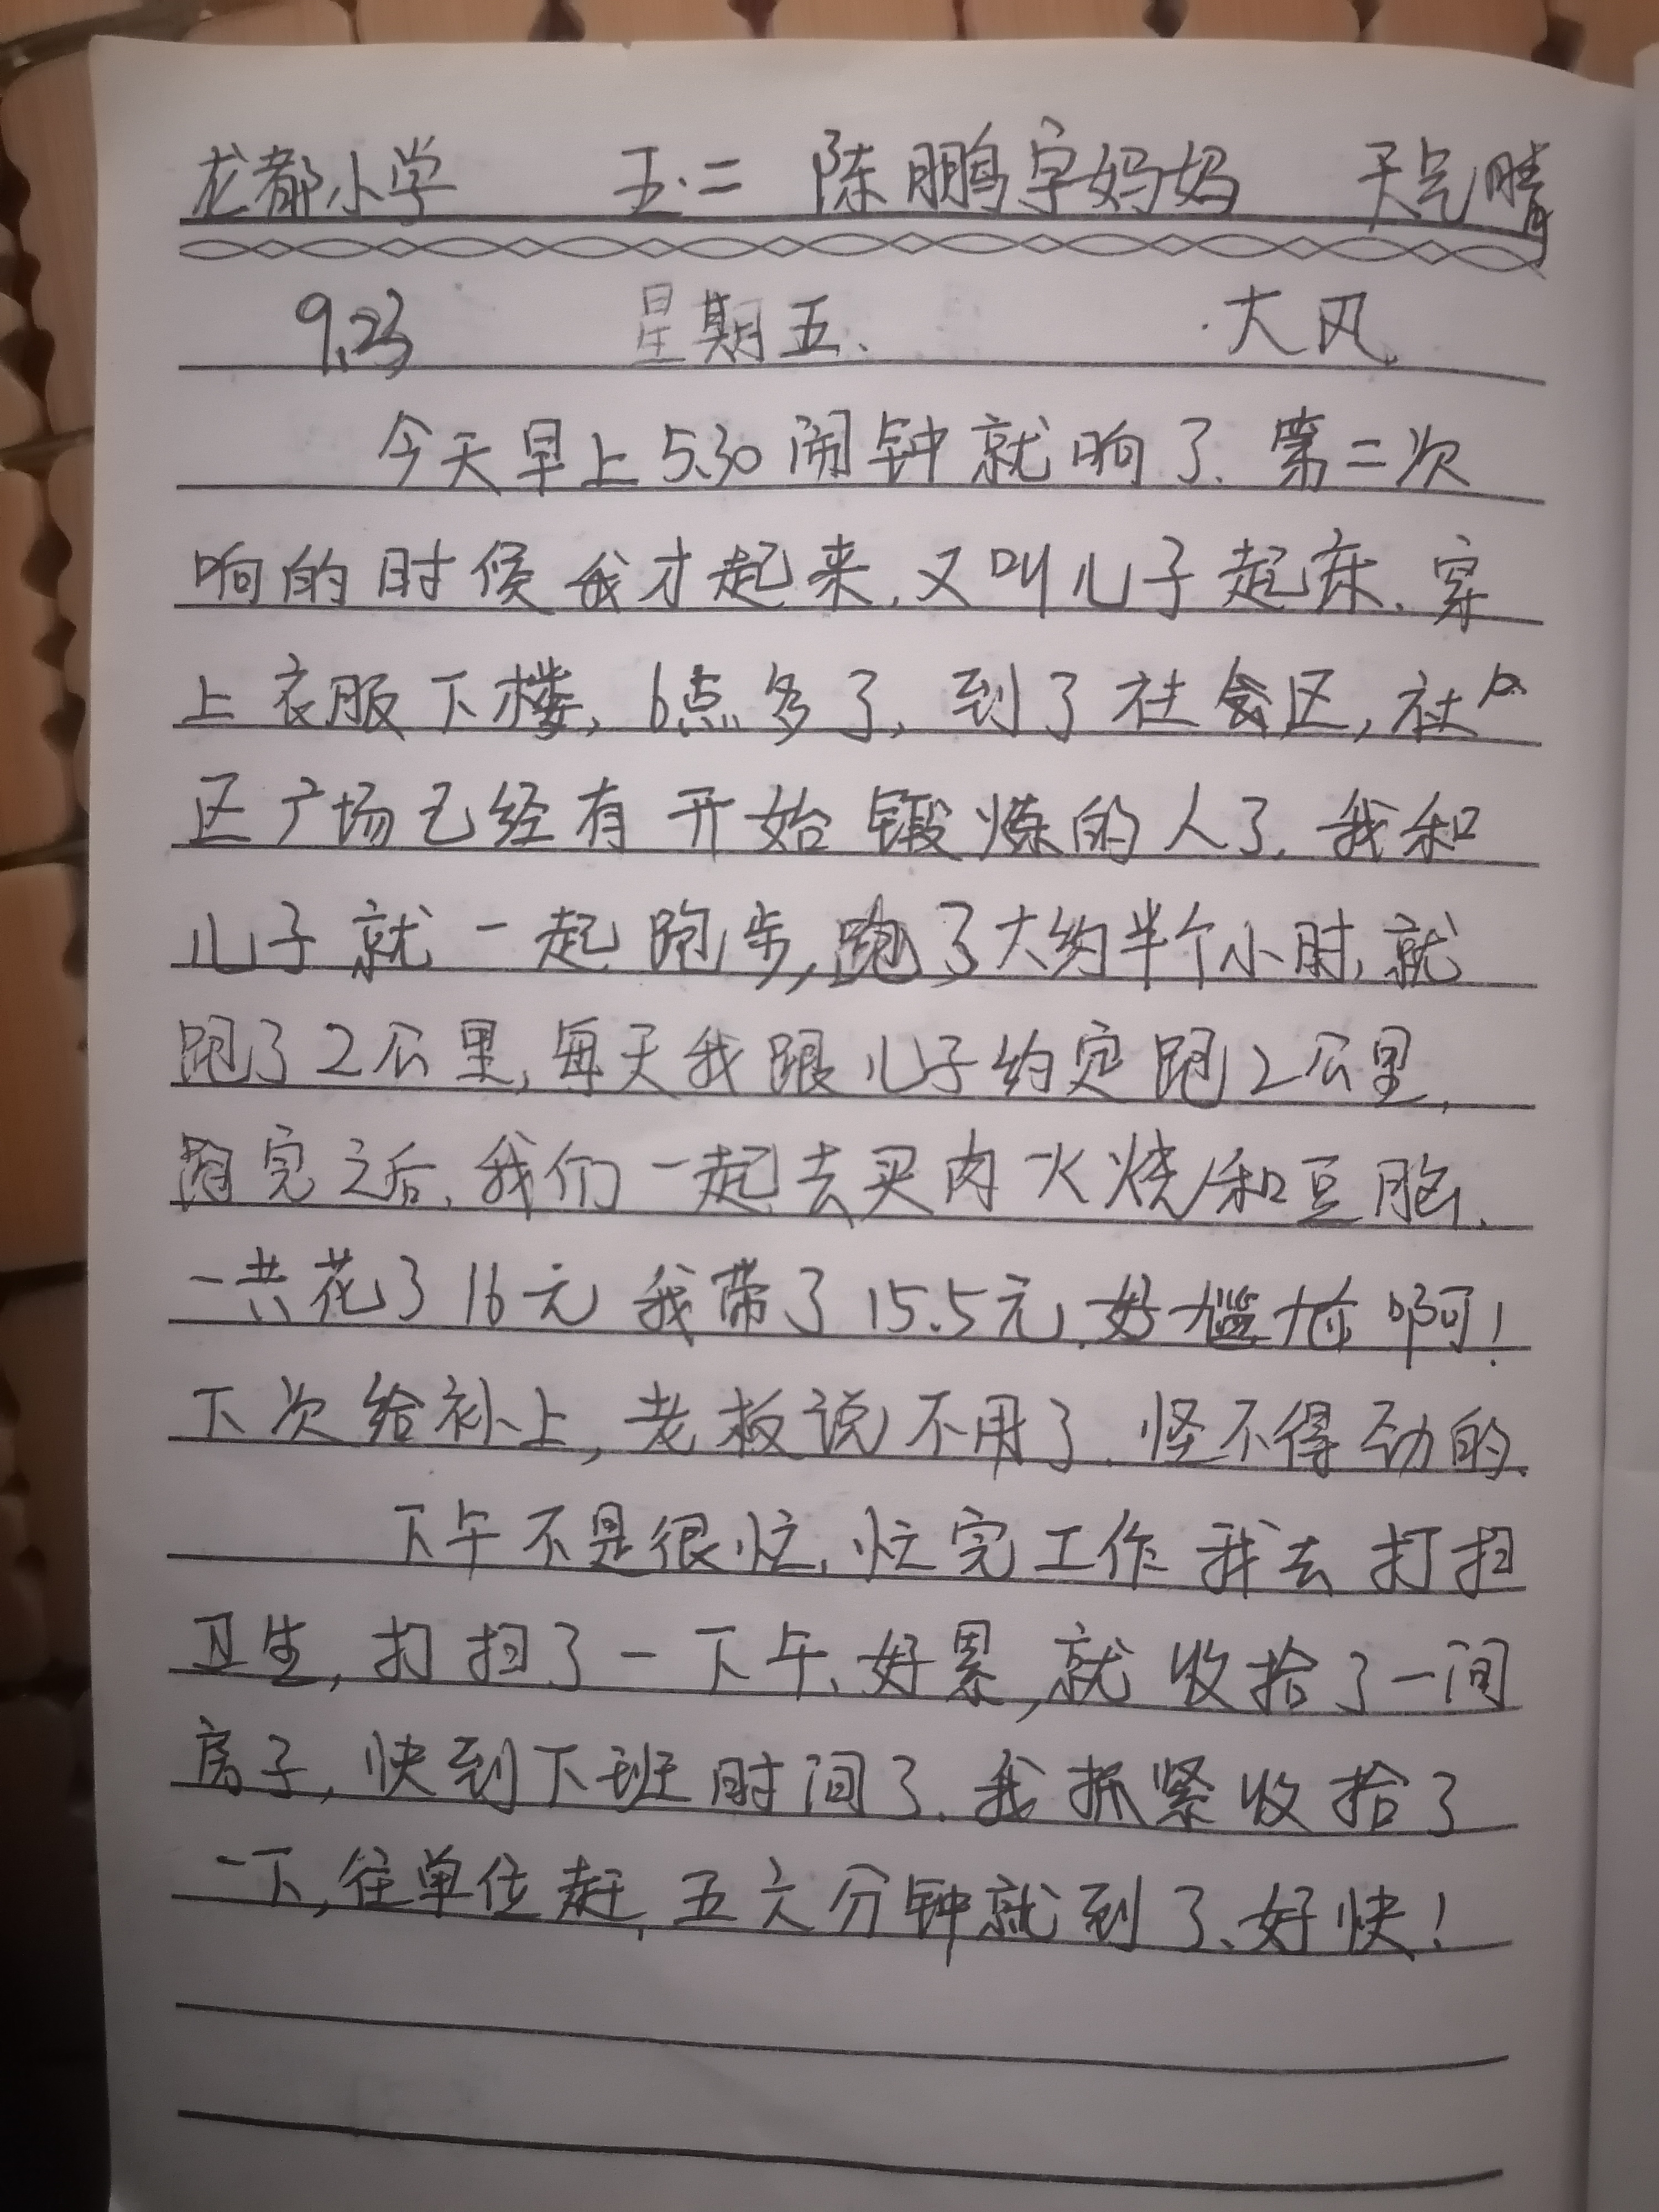 龙都小学 五.二 陈鹏宇妈妈 天气晴
9.23 星期五. 大风
今天早上5.30闹钟就响了.第二次
响的时候我才起来.又叫儿子起床.穿
上衣服下楼,6点多了,到了社会区,社
区广场已经有开始锻炼的人了.我和
儿子就一起跑步,跑了大约半个小时,就
跑了2公里,每天我跟儿子约定跑2公里,
跑完之后,我们一起去买肉火烧和豆脑.
一共花了16元 我带了15.5元,好尴尬啊!
下次给补上,老板说不用了.怪不得劲的.
下午不是很忙,忙完工作我去打扫
卫生,打扫了一下午、好累,就收拾了一间
房子,快到下班时间了.我抓紧收拾了
一下,往单位赶,五六分钟就到了、好快!